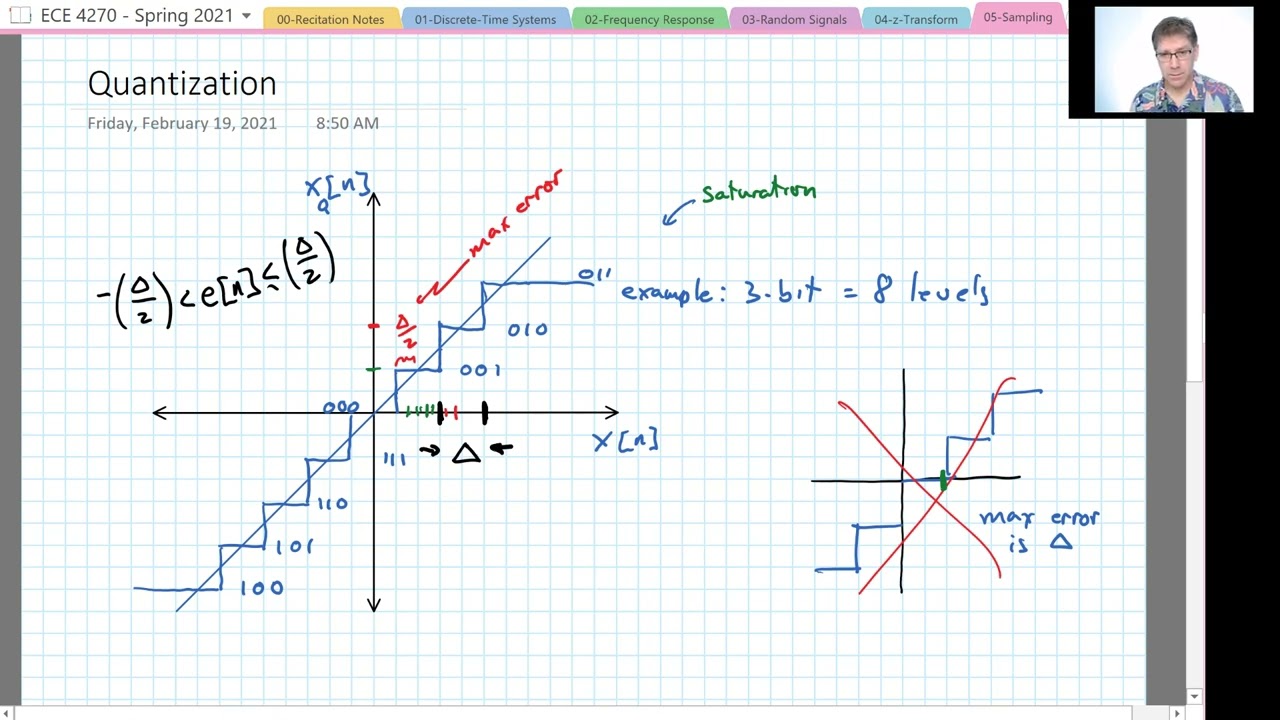 ECE 4270 - Spring 2021
00-Recitation Notes
01-Discrete-Time Systems
02-Frequency Response
03-Random Signals
04-z-Transform
05-Sampling
Quantization
Friday, February 19, 2021 8:50 AM
x_Q[n]
max error
saturation
-(Δ/2) < e[n] ≤ (Δ/2)
011
example: 3-bit = 8 levels
Δ/2
010
001
000
x[n]
111
→ Δ ←
110
max error
is Δ
101
100